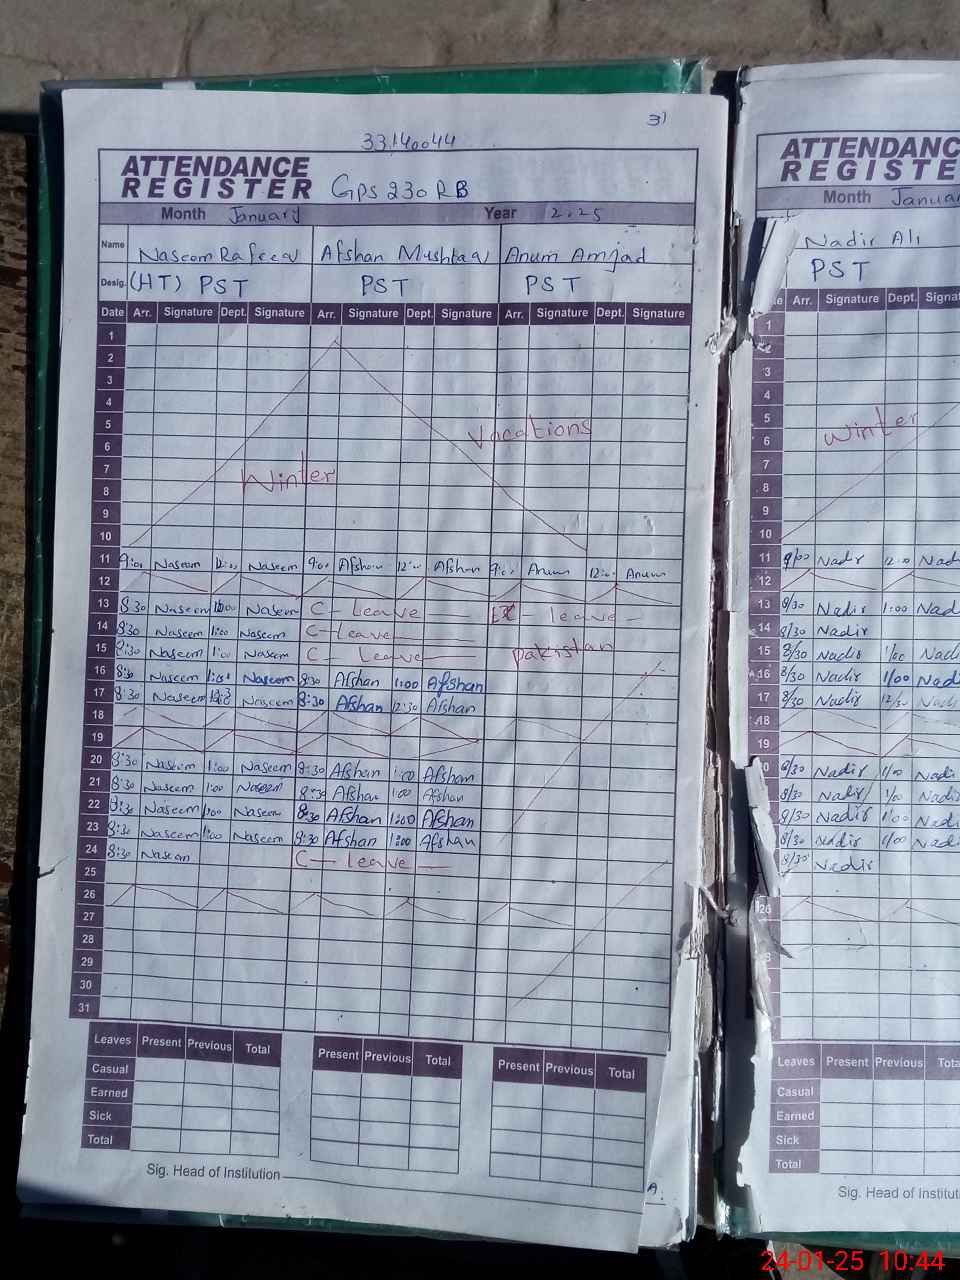 31
33140044
ATTENDANCE
REGISTER GPS 230 RB
Month January Year 2025
Name Naseem Rafeeq Afshan Mushtaq Anum Amjad
Desig. (HT) PST PST PST
Date Arr. Signature Dept. Signature Arr. Signature Dept. Signature Arr. Signature Dept. Signature
1
2
3
4
5 Vacations
6
7 Winter
8
9
10
11 9:00 Naseem 12:00 Naseem 9:00 Afshan 12:00 Afshan 9:00 Anum 12:00 Anum
12
13 8:30 Naseem 1:00 Naseem C - Leave EX - leave -
14 8:30 Naseem 1:00 Naseem C - Leave
15 8:30 Naseem 1:00 Naseem C - Leave Pakistan
16 8:30 Naseem 1:00 Naseem 8:30 Afshan 1:00 Afshan
17 8:30 Naseem Naseem 8:30 Afshan 12:30 Afshan
18
19
20 8:30 Naseem 1:00 Naseem 8:30 Afshan 1:00 Afshan
21 8:30 Naseem 1:00 Naseem 8:30 Afshan 1:00 Afshan
22 8:30 Naseem 1:00 Naseem 8:30 Afshan 1:00 Afshan
23 8:30 Naseem 1:00 Naseem 8:30 Afshan 1:00 Afshan
24 8:30 Naseem C - Leave -
25
26
27
28
29
30
31
Leaves Present Previous Total Present Previous Total Present Previous Total
Casual
Earned
Sick
Total
Sig. Head of Institution
ATTENDANC
REGISTE
Month Januar
Nadir Ali
PST
Arr. Signature Dept. Signat
1
3
4
5
6 Winter
7
8
9
10
11 9/00 Nadir 12:00 Nad
12
13 8/30 Nadir 1:00 Nad
14 8/30 Nadir
15 8/30 Nadir 1/00 Nad
16 8/30 Nadir 1/00 Nad
17 8/30 Nadir 12/30 Nad
18
19
8/30 Nadir 1/00 Nadi
8/30 Nadir 1/00 Nadi
8/30 Nadir 1:00 Nadi
8/30 Nadir 1/00 Nad
8/30 Nadir
26
Leaves Present Previous Tota
Casual
Earned
Sick
Total
Sig. Head of Instituti
24-01-25 10:44